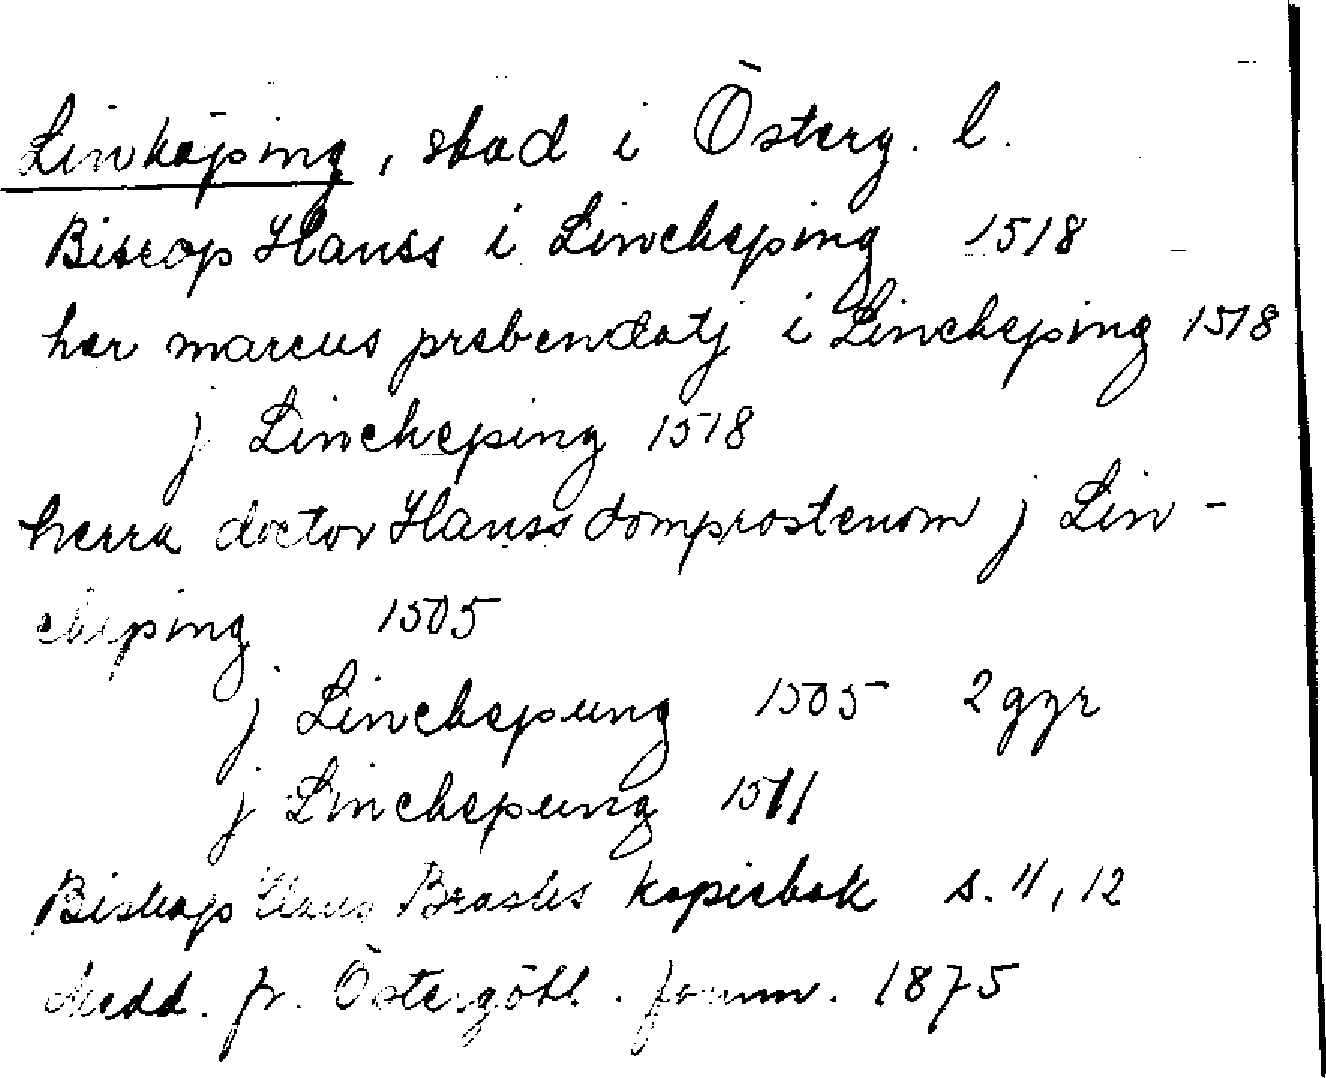 Linköping, stad i Österg. l.
Biscop Hanss i Linckeping 1518
her marcus prebendatj i Linckeping 1518
j Linckeping 1518
herra doctor Hanss domprostenom j Lin-
ckeping 1505
j Linckepung 1505 2 ggr
j Linckepung 1511
Biskop Hans Brasks kopiebok s. 11, 12
Medd. fr. Östergötl. fornm. 1875